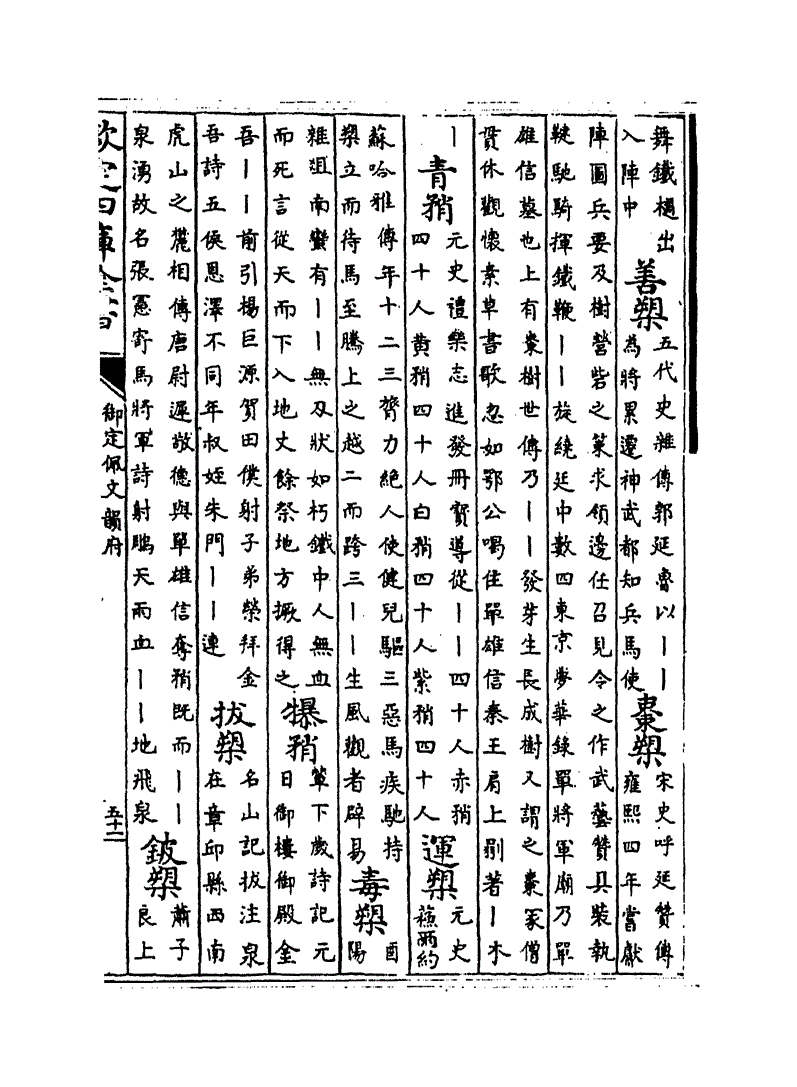 舞鐵檛出
入陣中
善槊
五代史雜傳郭延魯以丨丨
為將累遷神武都知兵馬使
棗槊
宋史呼延贊傳
雍熙四年嘗獻
陣圖兵要及樹營砦之策求領邊任召見令之作武藝贊具裝執
鞬馳騎揮鐵鞭丨丨旋繞廷中數四東京夢華錄單將軍廟乃單
雄信墓也上有棗樹世傳乃丨丨發芽生長成樹又謂之棗冢僧
貫休觀懷素草書歌忽如鄂公喝住單雄信秦王肩上剔著丨木
丨
青矟
元史禮樂志進發冊寶導從丨丨四十人赤矟
四十人黄矟四十人白矟四十人紫矟四十人
運槊
元史
蘓兩約
蘇哈雅傳年十二三膂力絶人使健兒驅三惡馬疾馳持
槊立而待馬至騰上之越二而跨三丨丨生風觀者辟易
毒槊
酉
陽
雜俎南蠻有丨丨無刃狀如朽鐵中人無血
而死言從天而下入地丈餘祭地方撅得之
犦矟
輦下歲詩記元
日御樓御殿金
吾丨丨前引楊巨源賀田僕射子弟榮拜金
吾詩五侯恩澤不同年叔姪朱門丨丨連
拔槊
名山記拔注泉
在章邱縣西南
虎山之麓相傳唐尉遲敬德與單雄信奪矟既而丨丨
泉湧故名張冕寄馬將軍詩射鵰天雨血丨丨地飛泉
鈹槊
蕭子
良上
欽定四庫全書
御定佩文韻府
五十二